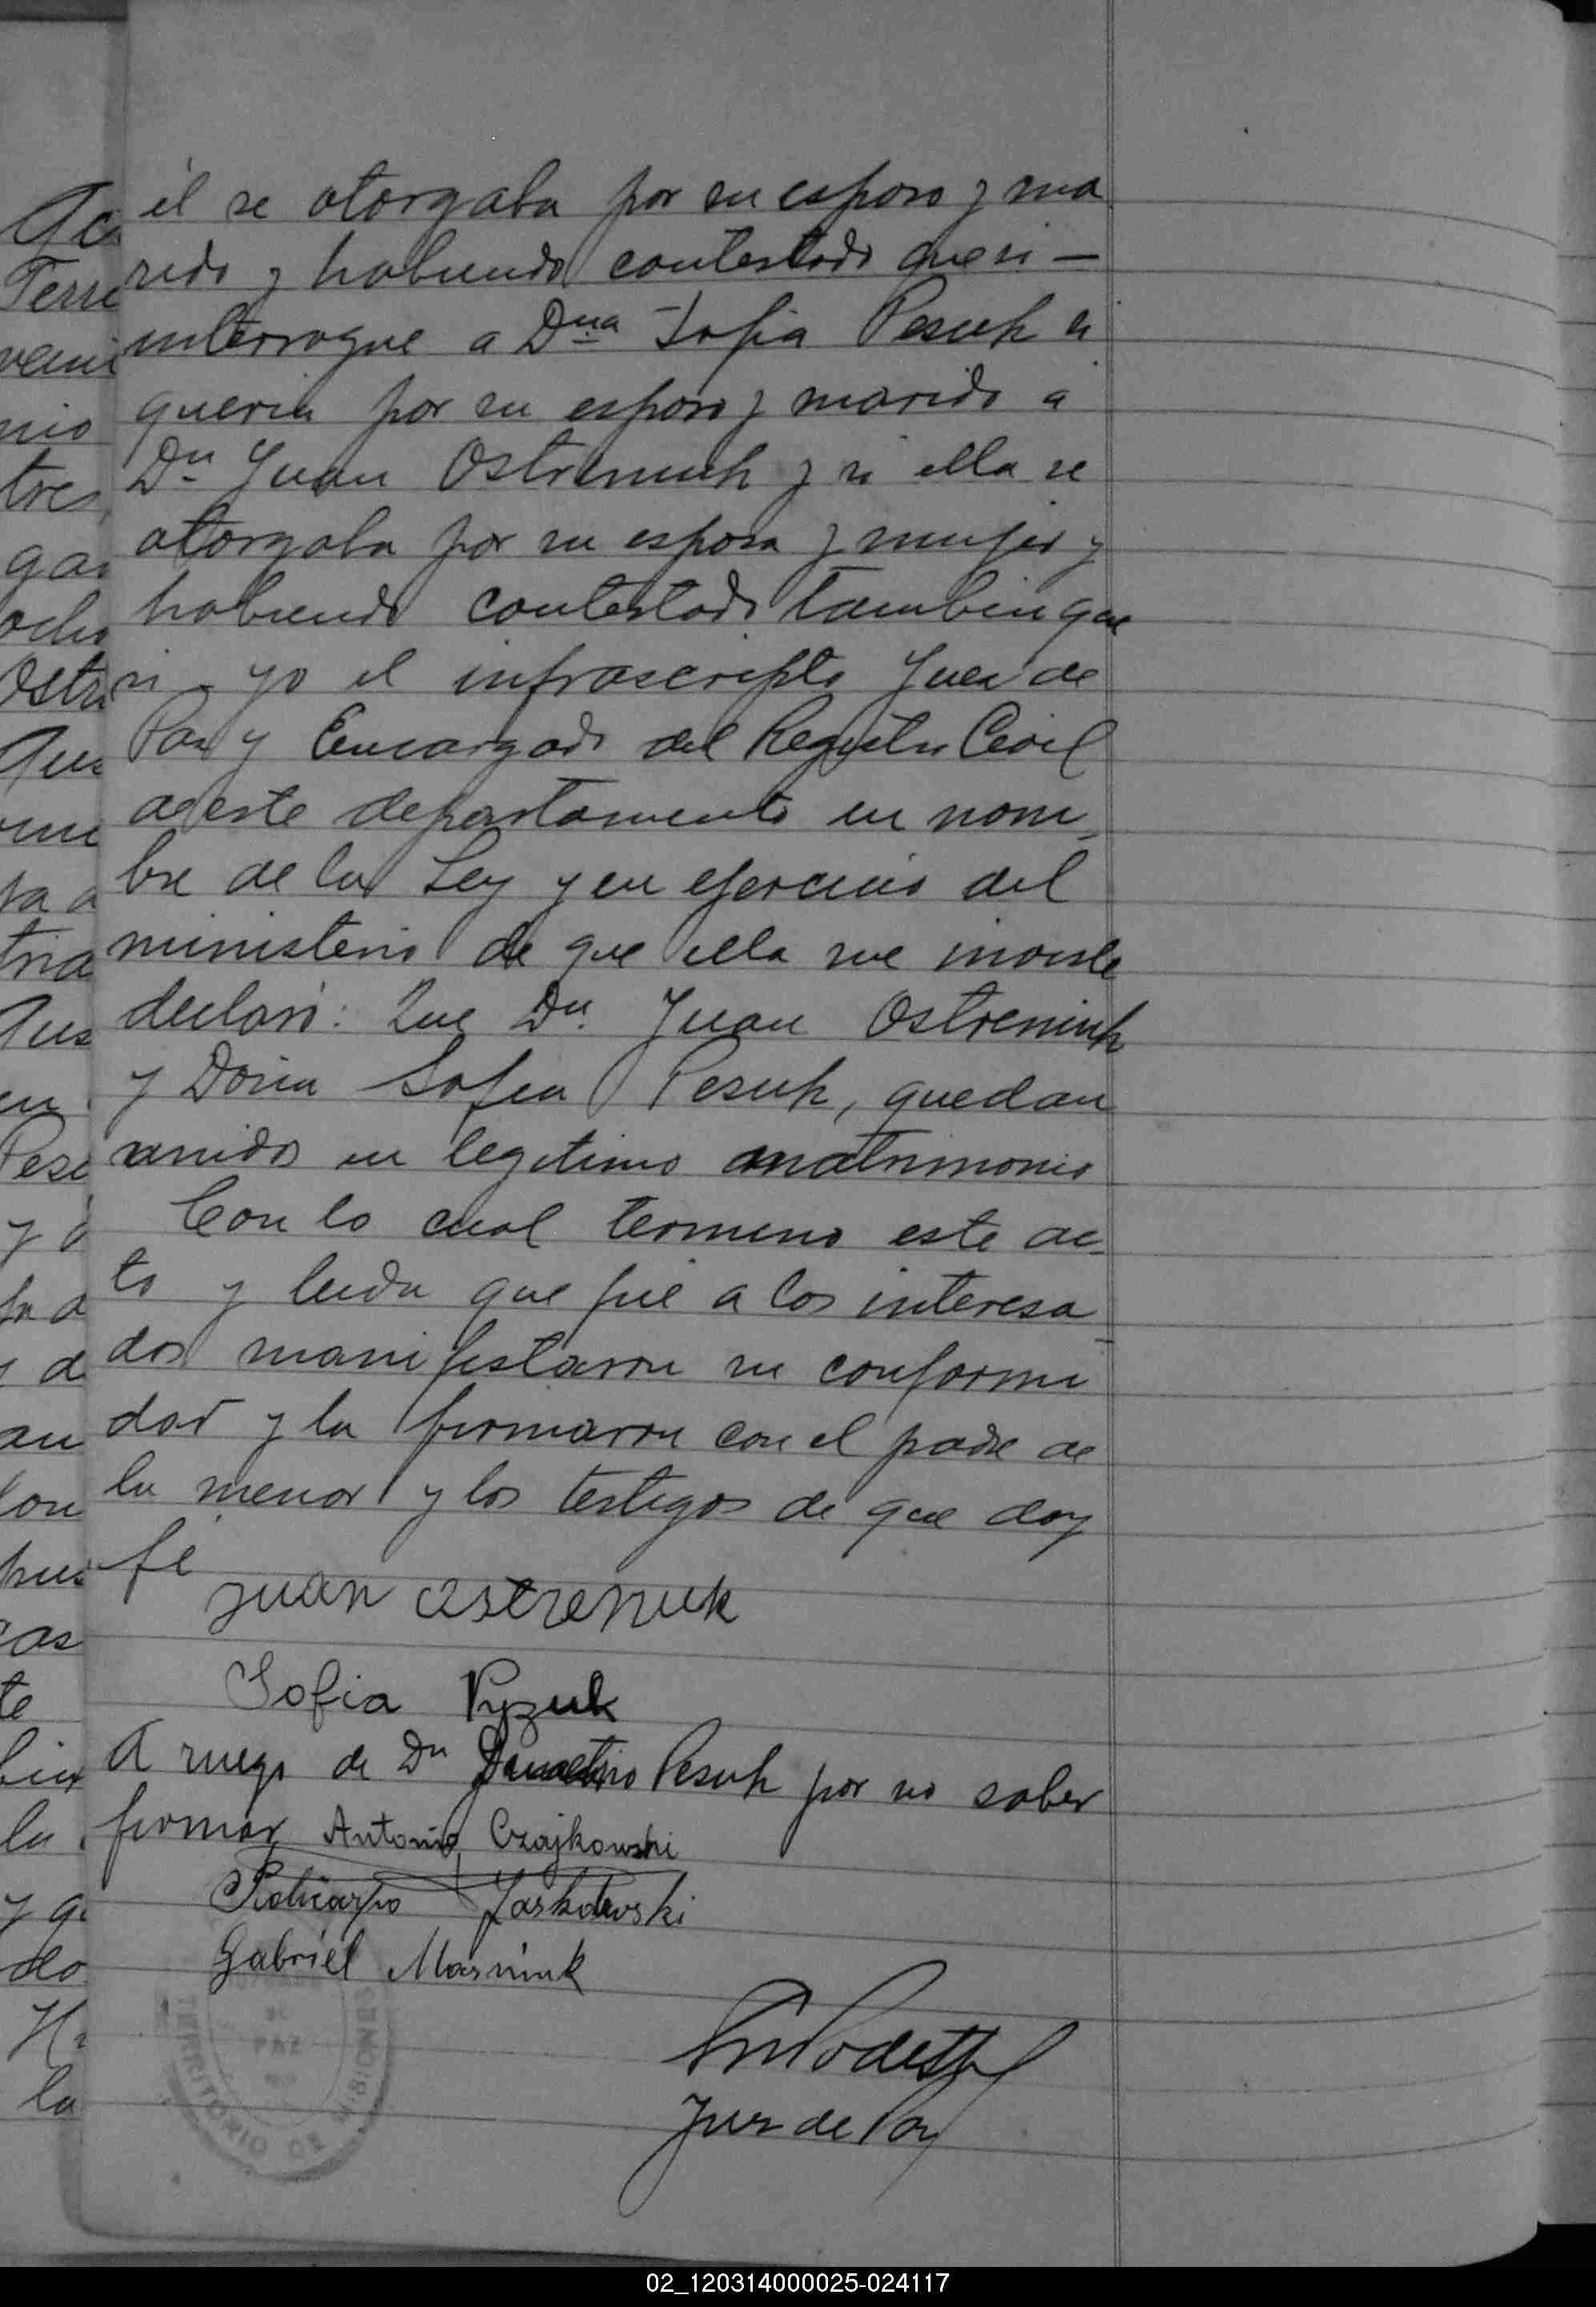 él se otorgaba por su esposo y ma
rido y habiendo contestado que si —
interrogue a Dna Sofia Pesuk si
queria por su esposo y marido a
Dn Juan Ostreniuk y si ella se
otorgaba por su esposa y mujer y
habiendo contestado tambien que
si yo el infrascripto Juez de
Paz y Encargado del Registro Civil
de este departamento en nom_
bre de la Ley y en ejercicio del
ministerio de que ella me inviste
declaro: Que Dn. Juan Ostreniuk
y Doña Sofia Pesuk, quedan
unidos en legitimo matrimonio
Con lo cual termino este ac_
to y leida que fué a los interesa_
dos manifestaron su conformi
dad y la firmaron con el padre de
la menor y los testigos de que doy
fe
Juan Ostrenuk
Sofia Pyzuk
A ruego de Dn Demetrio Pesuk por no saber
firmar Antonio Czajkowski
Policarpo Jaskolowski
Gabriél Masniuk
Podestá
Juez de Paz
PAZ
TERRITORIO DE MISIONES
Ac
Terr
veni
nio
tres,
gar
ocho
Ostr
Aus
ra a
tria
Aus
en
Pesu
y
y d
an
pus
cas
te
la
y q
do
la
02_120314000025-024117